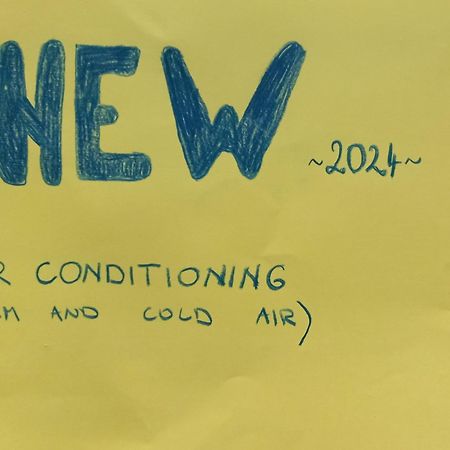 NEW
~2024~
R CONDITIONING
M AND COLD AIR)